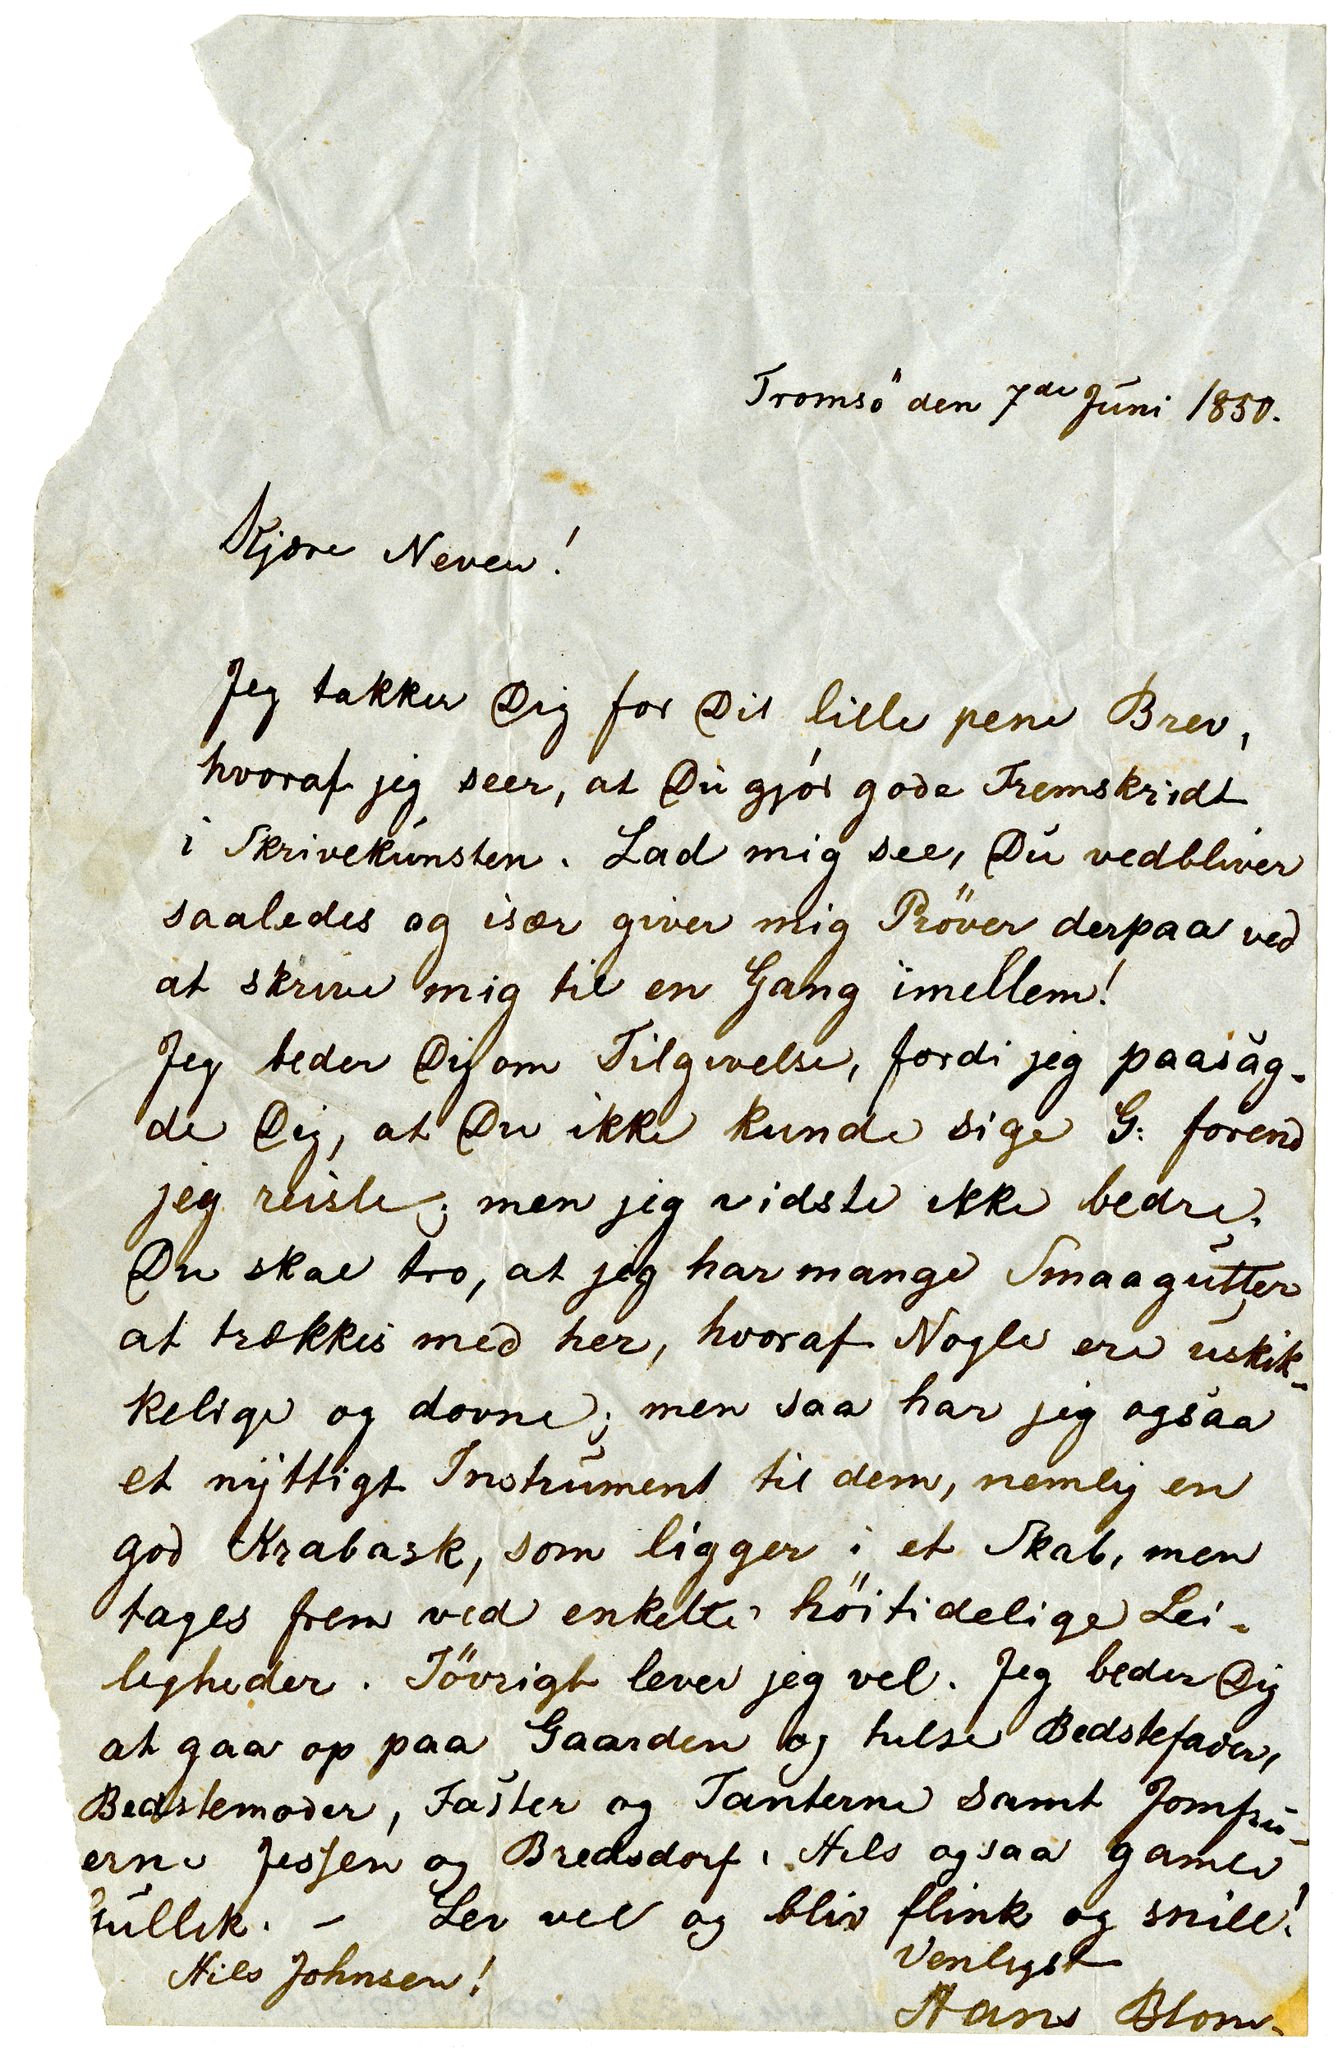 Tromsö den 7de Juni 1850.
Kjære Neveu!
Jeg takker Dig for Dit lille pene Brev,
hvoraf jeg seer, at Du gjör gode Fremskridt
i Skrivekunsten. Lad mig see, Du vedbliver
saaledes og især giver mig Pröver derpaa ved
at skrive mig til en Gang imellem!
Jeg beder Dig om Tilgivelse, fordi jeg paasag-
de Dig, at Du ikke kunde sige G: forend
jeg reiste; men jeg vidste ikke bedre.
Du skal tro, at jeg har mange Smaagutter
at trækkes med her, hvoraf Nogle ere uskik-
kelige og dovne; men saa har jeg ogsaa
et nyttigt Instrument til dem, nemlig en
god Krabask, som ligger i et Skab, men
tages frem ved enkelte höitidelige Lei-
ligheder. Iövrigt lever jeg vel. Jeg beder Dig
at gaa op paa Gaarden og hilse Bedstefader,
Bedstemoder, Faster og Tanterne samt Jomfru-
erne Jessen og Bredsdorf. Hils ogsaa gamle
Gullik. - Lev vel og bliv flink og snill!
Venligst
Hils Johnsen!
Hans Blom.